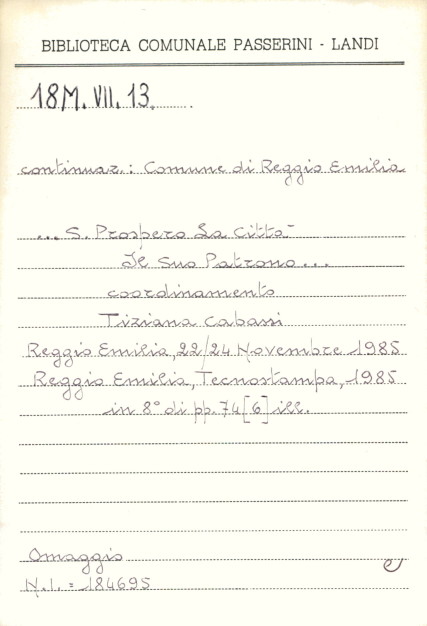 BIBLIOTECA COMUNALE PASSERINI - LANDI
18M. VII. 13.
continuaz.: Comune di Reggio Emilia
... S. Prospero La Città
Il Suo Patrono...
coordinamento
Tiziana Cabassi
Reggio Emilia, 22/24 Novembre 1985
Reggio Emilia, Tecnostampa, 1985
in 8° di pp. 74 [6] ill.
Omaggio
N.I. = 184695